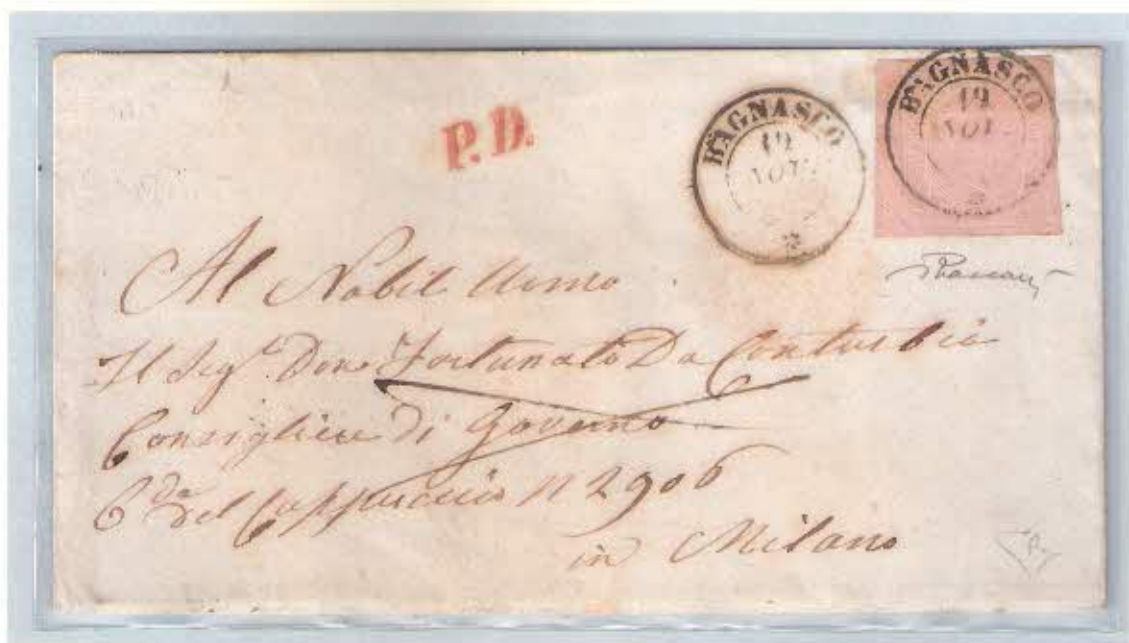 P. D.
BAGNASCO
19
NOV.
BAGNASCO
19
NOV
Al Nobil Uomo
Il Sig.r Don Fortunato Da Conturbia
Consigliere di Governo
C.da del Cappuccio N 2906
in Milano